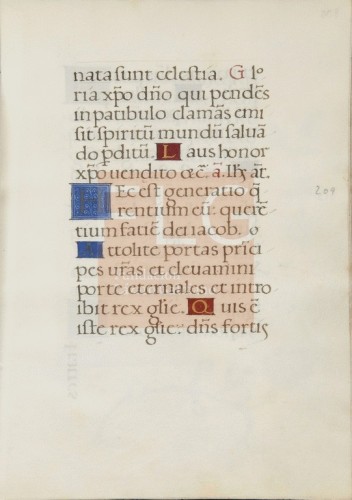 nata sunt celestia. G lo
ria xp̄o dn̄o qui pendēs
in patibulo clamās emi
sit spiritū mundū saluā
do p̄ditū. L aus honor
xp̄o uendito &c̄. ā. Ih̄s āt.
H Ec est generatio q̄
rentium eū: querē
tium faciē dei iacob. o
A ttolite portas prīci
pes ur̄as et eleuamini
porte eternales et intro
ibit rex glīe. Q uis ē
iste rex glīe. dn̄s fortis
209
FLG